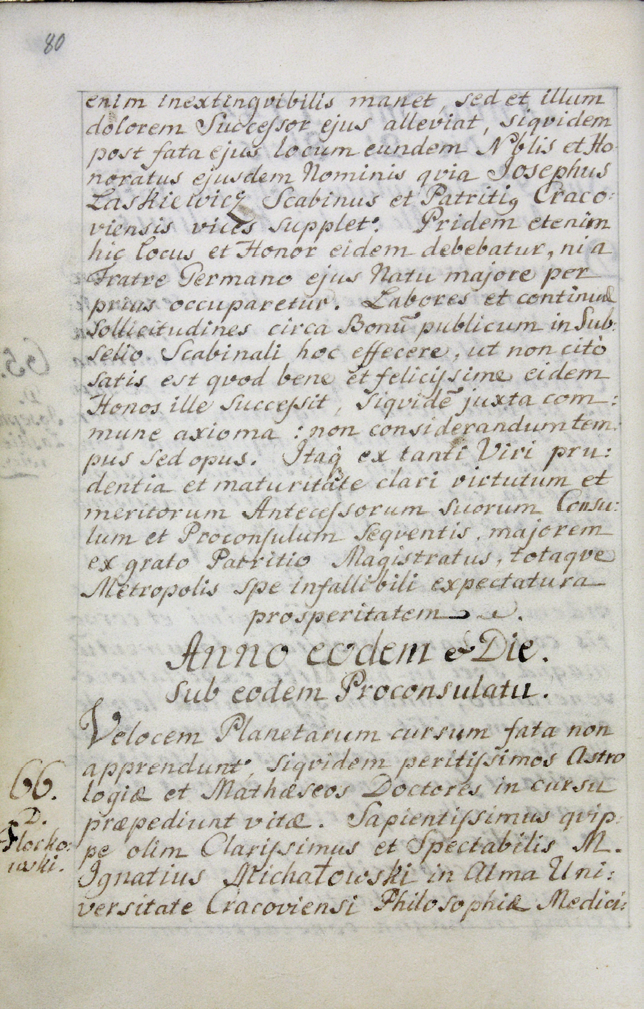 80
enim inextinqvibilis manet, sed et illum
dolorem Successor ejus alleviat, siqvidem
post fata ejus locum eundem Nblis et Ho-
noratus ejusdem Nominis qvia Josephus
Laskiewicz Scabinus et Patritig Craco-
viensis vices supplet. Pridem etenim
hic locus et Honor eidem debebatur, ni a
Fratre Germano ejus Natu majore per
prius occuparetur. Labores et continuæ
Sollicitudines circa Bonū publicum in Sub-
selio Scabinali hoc effecere, ut non citò
satis est qvod bene et felicissime eidem
Honos ille Successit, Siqvidē juxta com:
mune axioma: non considerandum tem:
pus sed opus. Itaq ex tanti Viri pru:
dentia et maturitate clari virtutum et
meritorum Antecessorum Suorum Consu:
lum et Proconsulum Seqventis, majorem
ex grato Patritio Magistratus, totaqve
Metropolis Spe infallibili expectatura
prosperitatem
Anno eodem & Die.
Sub eodem Proconsulatu.
Velocem Planetarum cursum fata non
apprendunt, siqvidem peritissimos Astro
logiæ et Mathæseos Doctores in cursu
præpediunt vitæ. Sapientissimus qvip:
pe olim Clarissimus et Spectabilis M.
Ignatius Michałowski in Alma Uni:
versitate Cracoviensi Philosophiæ Medici:
66.
D.
Flocko:
wski.